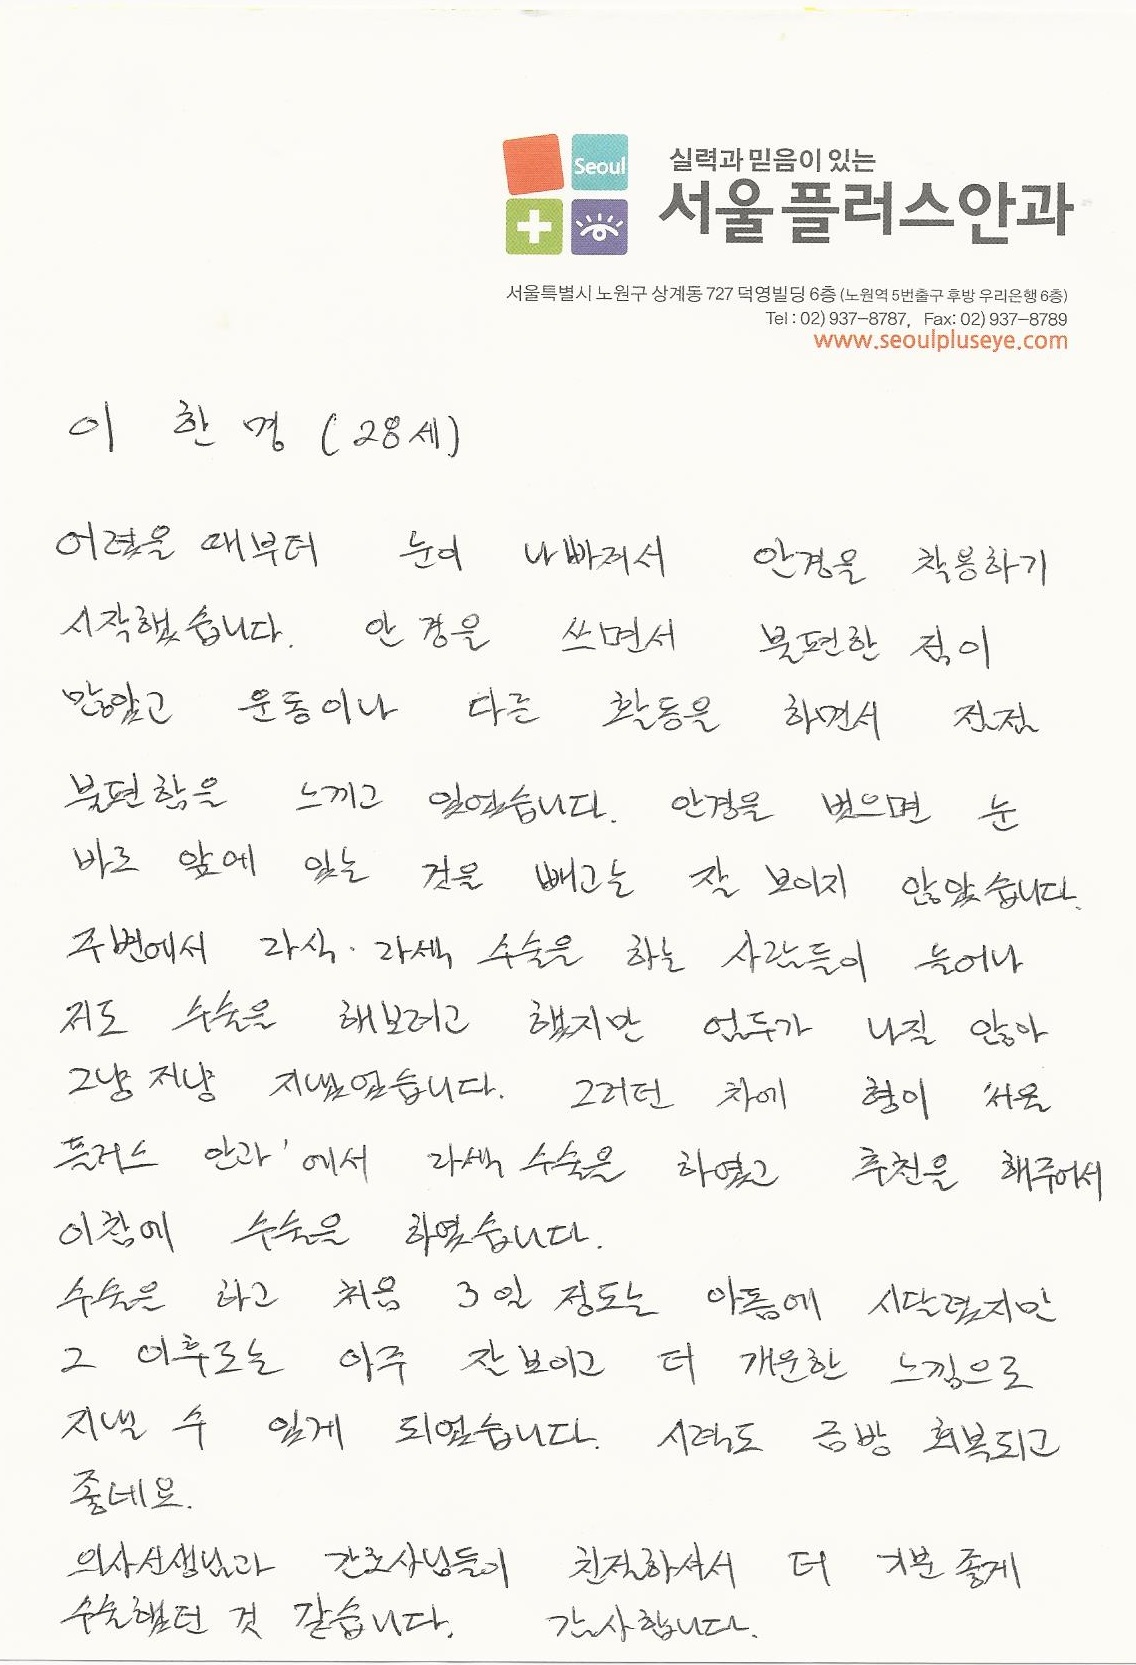 Seoul
실력과 믿음이 있는
서울플러스안과
서울특별시 노원구 상계동 727 덕영빌딩 6층 (노원역 5번출구 후방 우리은행 6층)
Tel : 02) 937-8787, Fax: 02) 937-8789
www.seoulpluseye.com
이 한 명 (28세)
어렸을 때부터 눈이 나빠져서 안경을 착용하기
시작했습니다. 안경을 쓰면서 불편한 점이
많았고 운동이나 다른 활동을 하면서 점점
불편함을 느끼고 있었습니다. 안경을 벗으면 눈
바로 앞에 있는 것을 빼고는 잘 보이지 않았습니다.
주변에서 라식·라섹 수술을 하는 사람들이 늘어나
저도 수술을 해보려고 했지만 엄두가 나질 않아
그냥저냥 지냈었습니다. 그러던 차에 형이 '서울
플러스 안과'에서 라섹 수술을 하였고 추천을 해주어서
이참에 수술을 하였습니다.
수술을 하고 처음 3일 정도는 아픔에 시달렸지만
그 이후로는 아주 잘 보이고 더 개운한 느낌으로
지낼 수 있게 되었습니다. 시력도 금방 회복되고
좋네요.
의사선생님과 간호사님들이 친절하셔서 더 기분 좋게
수술했던 것 같습니다. 감사합니다.